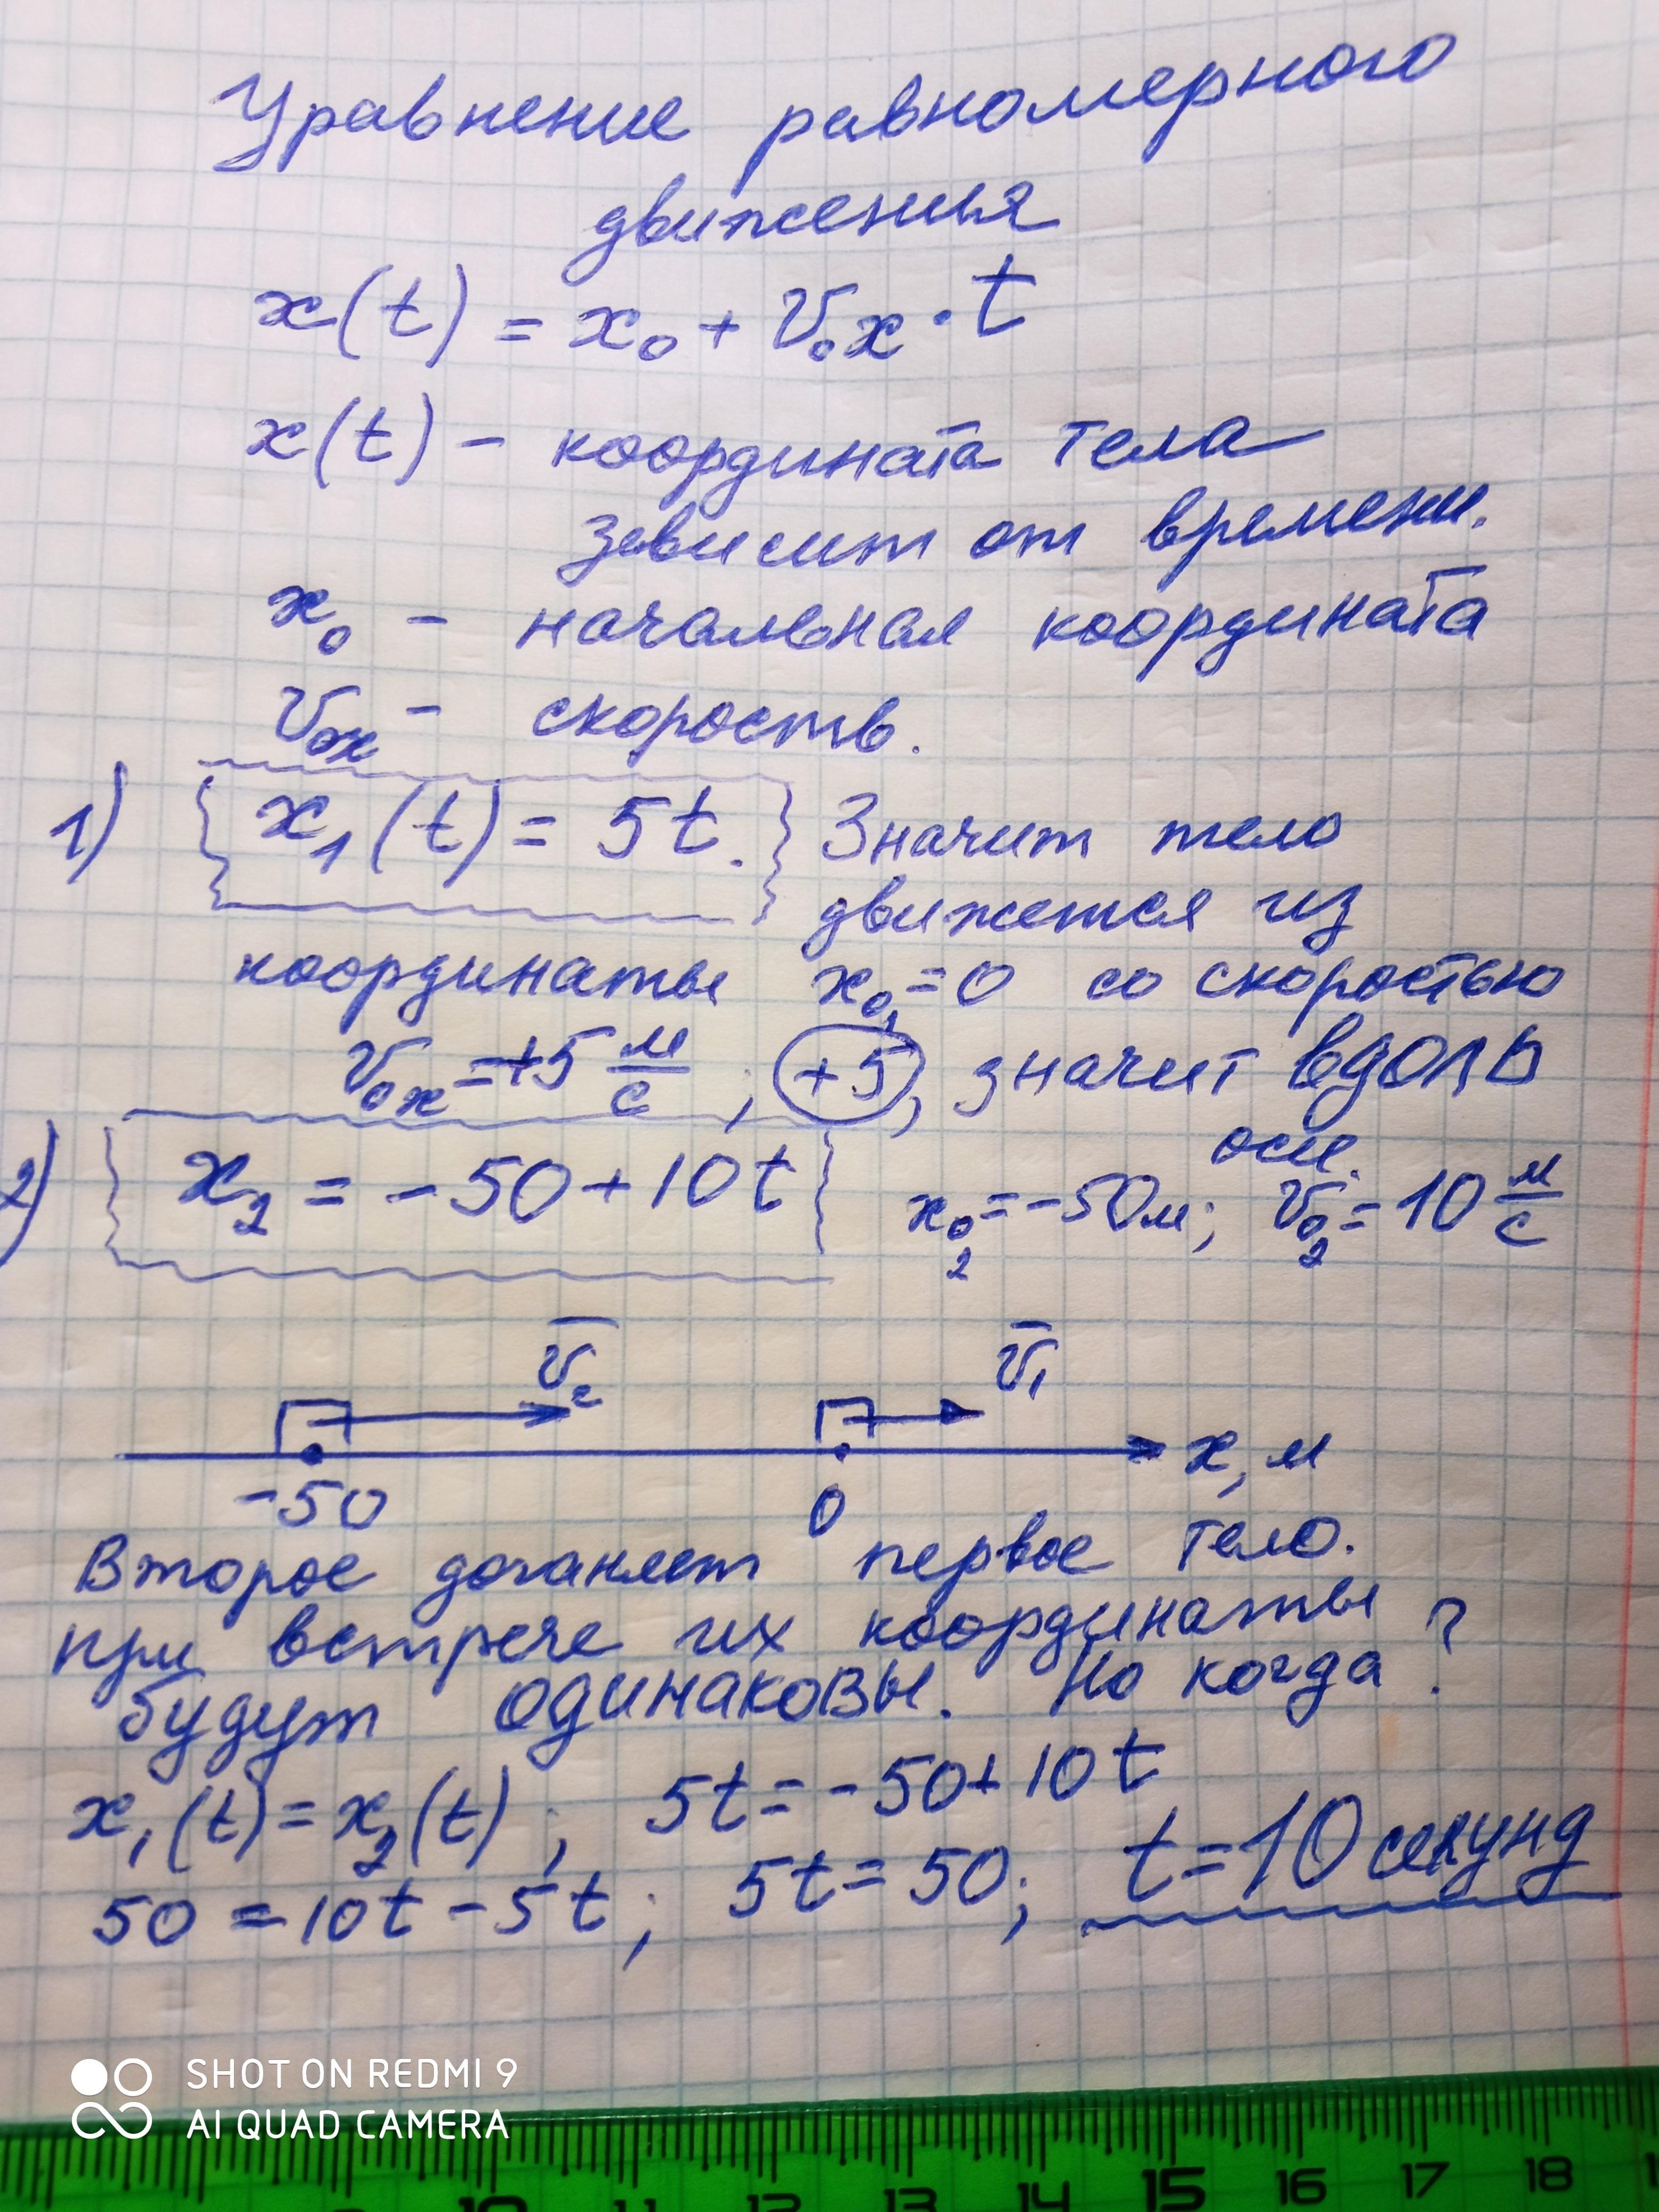 Уравнение равномерного
движения
x(t) = x₀ + V₀x · t
x(t) – координата тела
зависит от времени.
x₀ – начальная координата
V₀x – скорость.
1) x₁(t) = 5t. Значит тело
движется из
координаты x₀₁ = 0 со скоростью
V₀x = +5 м/с ; +5, значит вдоль
оси.
2) x₂ = -50 + 10t x₀₂ = -50м; V₀₂ = 10 м/с
V₂ V₁
-50 0 x, м
Второе догоняет первое тело.
При встрече их координаты
будут одинаковы. Но когда?
x₁(t) = x₂(t) ; 5t = -50 + 10t
50 = 10t - 5t ; 5t = 50 ; t = 10 секунд
SHOT ON REDMI 9
AI QUAD CAMERA
10 11 12 13 14 15 16 17 18